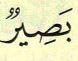 بَصِيرٌ